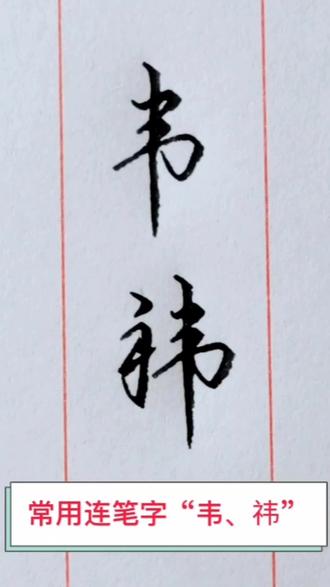 韦
祎
常用连笔字“韦、祎”